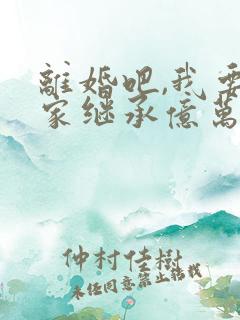 離婚吧,我要
家继承億萬
仲村佳樹
未经同意禁止转载